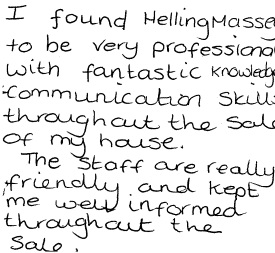 I found HellingMasse
to be very professiona
with fantastic knowledge
communication skill
throughout the sal
of my house.
The Staff are really
friendly and kept
me well informed
throughout the
Sale.